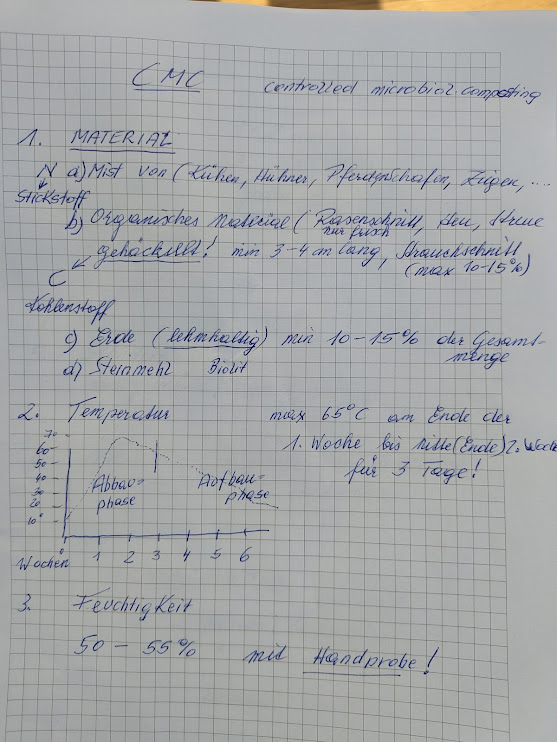 CMC controlled microbiol. composting
1. MATERIAL
N a) Mist von (Kühen, Hühner, Pferden, Schafen, Ziegen, ...
Stickstoff
b) Organisches Material (Rasenschnitt, Heu, Streue
nur frisch
gehäckselt! min 3-4 cm lang, Strauchschnitt
(max 10-15%)
C
Kohlenstoff
c) Erde (lehmhaltig) min 10-15% der Gesamt-
menge
d) Steinmehl Biolit
2. Temperatur max 65°C am Ende der
1. Woche bis Mitte (Ende) 2. Woche
für 3 Tage!
70
60
50
40
30
20
10°
Abbau-
phase
Aufbau-
phase
0
Wochen 1 2 3 4 5 6
3. Feuchtigkeit
50 - 55% mit Handprobe!